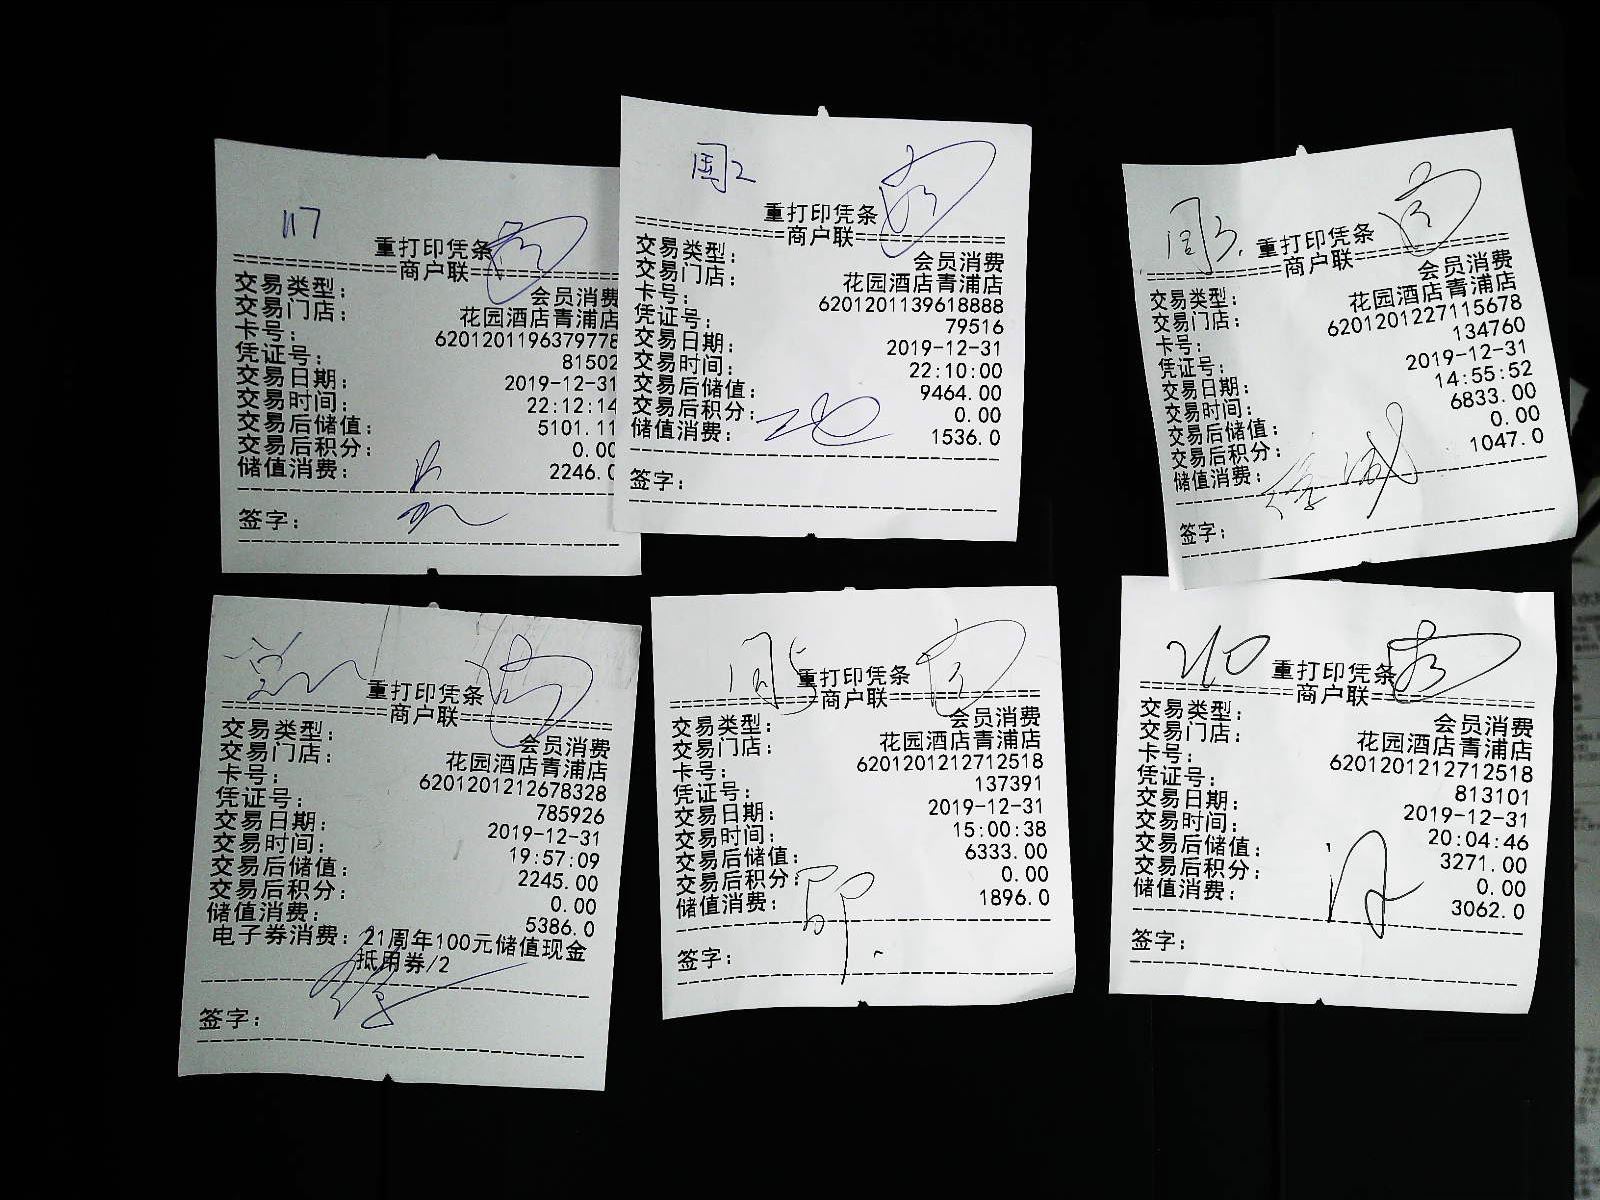 117
重打印凭条
==============商户联==============
交易类型: 会员消费
交易门店: 花园酒店青浦店
卡号: 6201201196379778
凭证号: 81502
交易日期: 2019-12-31
交易时间: 22:12:14
交易后储值: 5101.11
交易后积分: 0.00
储值消费: 2246.0
签字:
周2
重打印凭条
==============商户联==============
交易类型: 会员消费
交易门店: 花园酒店青浦店
卡号: 6201201139618888
凭证号: 79516
交易日期: 2019-12-31
交易时间: 22:10:00
交易后储值: 9464.00
交易后积分: 0.00
储值消费: 1536.0
签字:
周3
重打印凭条
==============商户联==============
交易类型: 会员消费
交易门店: 花园酒店青浦店
卡号: 6201201227115678
凭证号: 134760
交易日期: 2019-12-31
交易时间: 14:55:52
交易后储值: 6833.00
交易后积分: 0.00
储值消费: 1047.0
签字:
重打印凭条
==============商户联==============
交易类型: 会员消费
交易门店: 花园酒店青浦店
卡号: 6201201212678328
凭证号: 785926
交易日期: 2019-12-31
交易时间: 19:57:09
交易后储值: 2245.00
交易后积分: 0.00
储值消费: 5386.0
电子券消费: 21周年100元储值现金
抵用券/2
签字:
周5
重打印凭条
==============商户联==============
交易类型: 会员消费
交易门店: 花园酒店青浦店
卡号: 6201201212712518
凭证号: 137391
交易日期: 2019-12-31
交易时间: 15:00:38
交易后储值: 6333.00
交易后积分: 0.00
储值消费: 1896.0
签字:
重打印凭条
==============商户联==============
交易类型: 会员消费
交易门店: 花园酒店青浦店
卡号: 6201201212712518
凭证号: 813101
交易日期: 2019-12-31
交易时间: 20:04:46
交易后储值: 3271.00
交易后积分: 0.00
储值消费: 3062.0
签字: